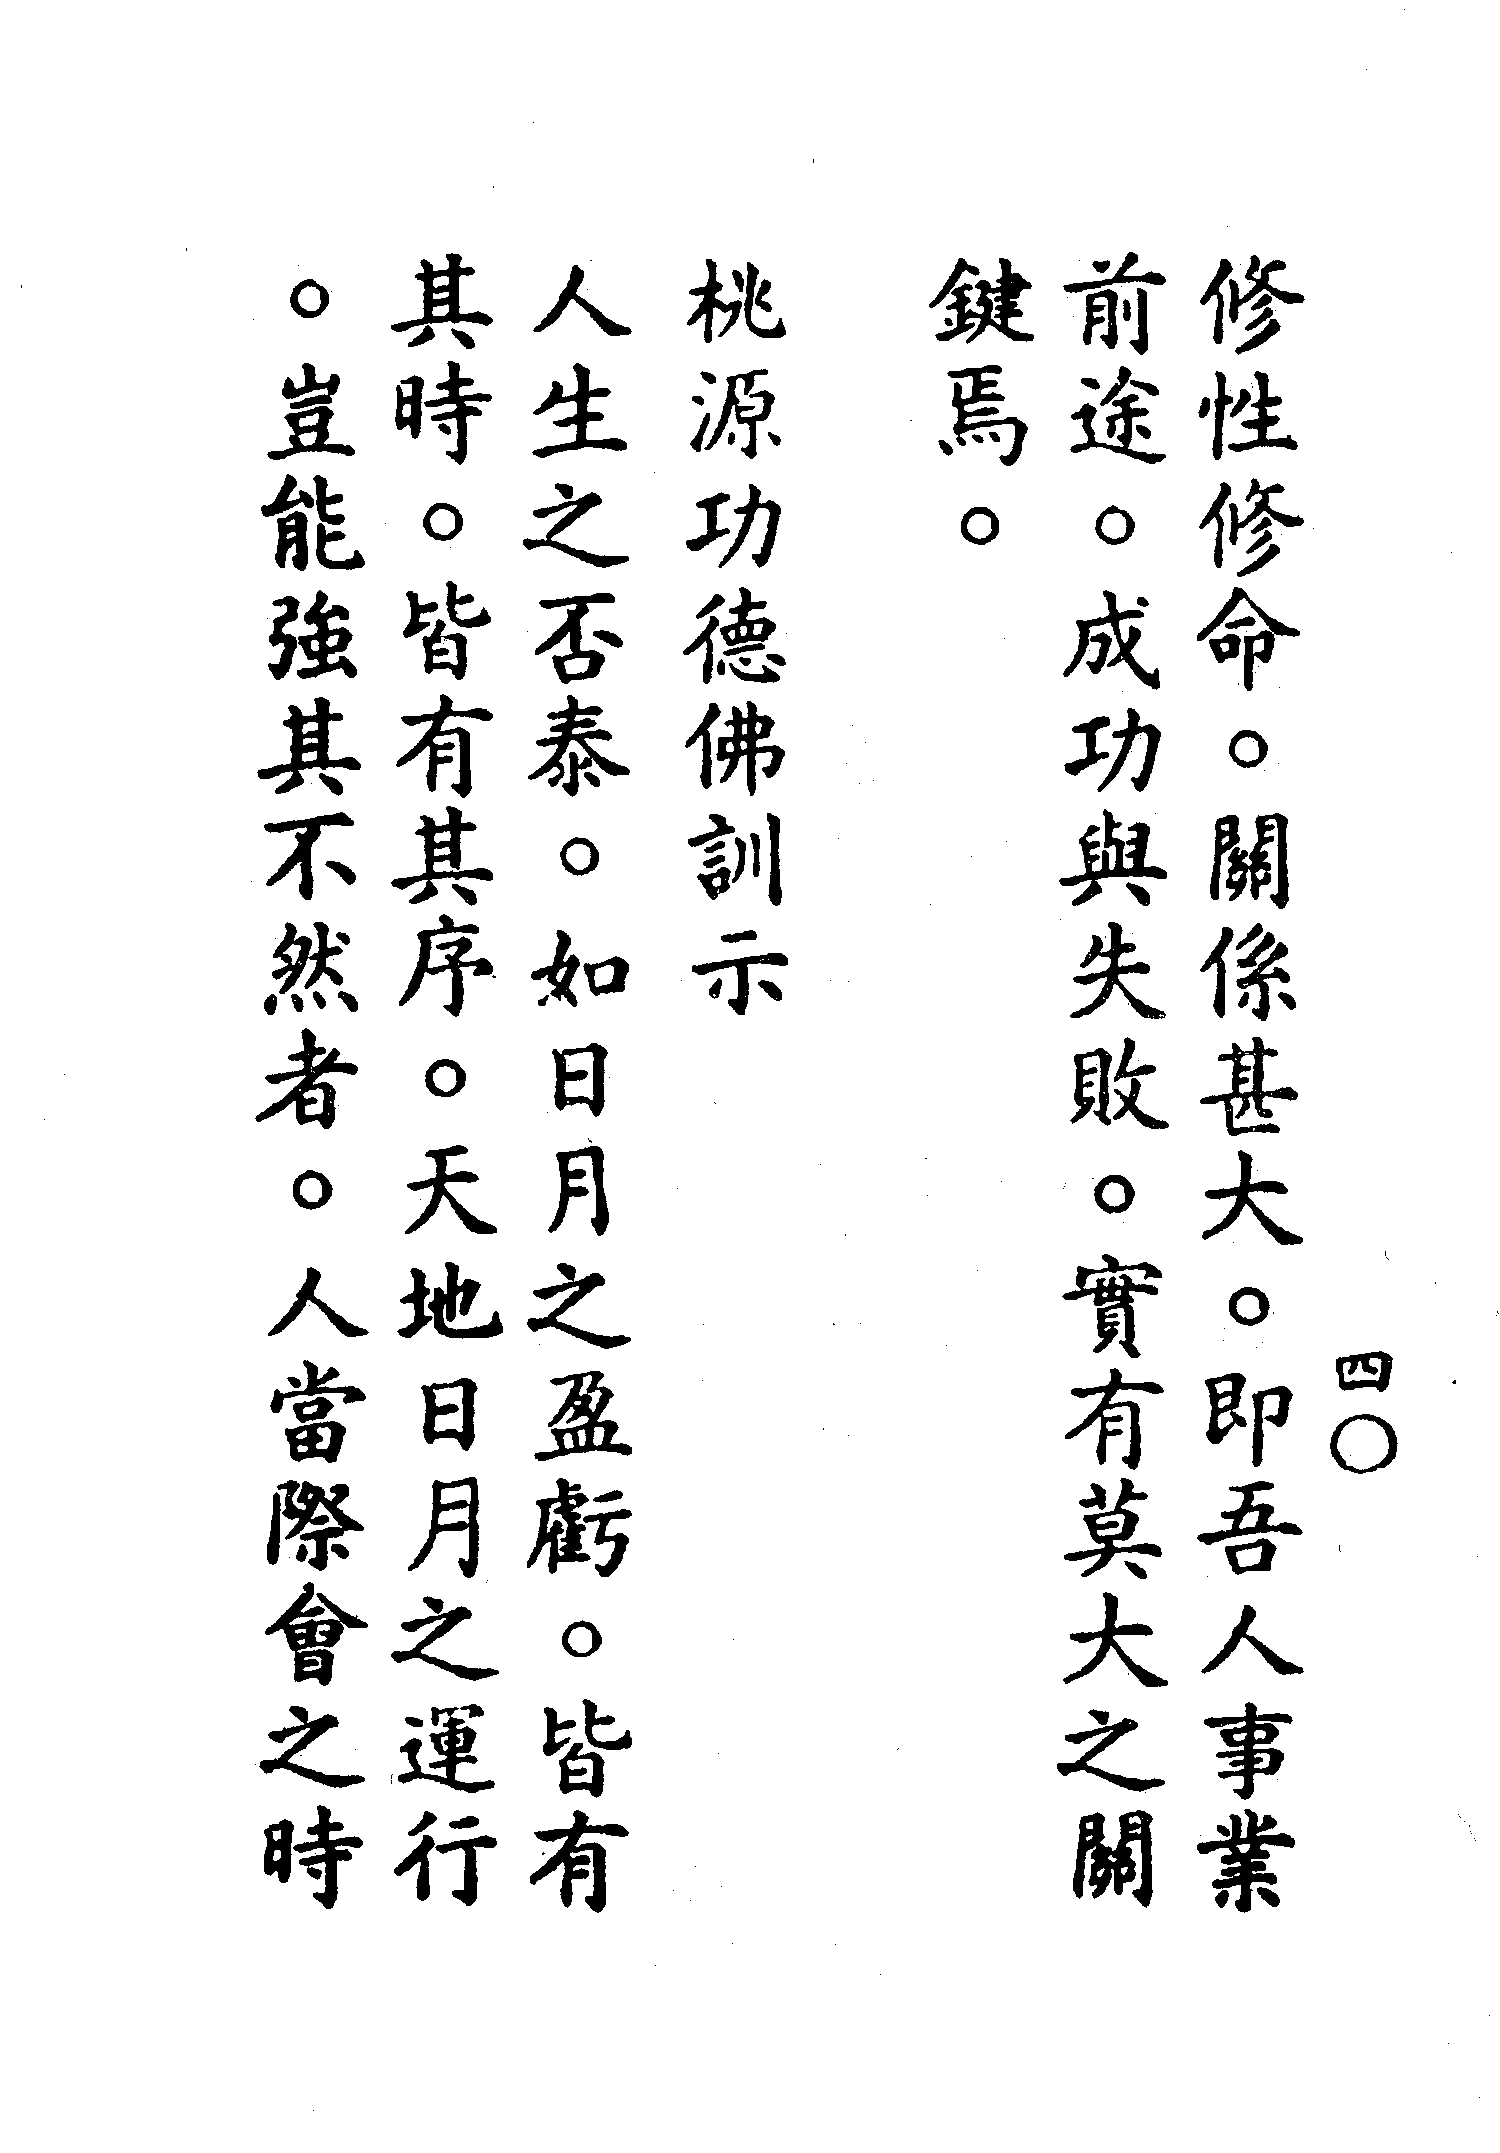 四〇
修性修命。關係甚大。即吾人事業
前途。成功與失敗。實有莫大之關
鍵焉。
桃源功德佛訓示
人生之否泰。如日月之盈虧。皆有
其時。皆有其序。天地日月之運行
。豈能強其不然者。人當際會之時